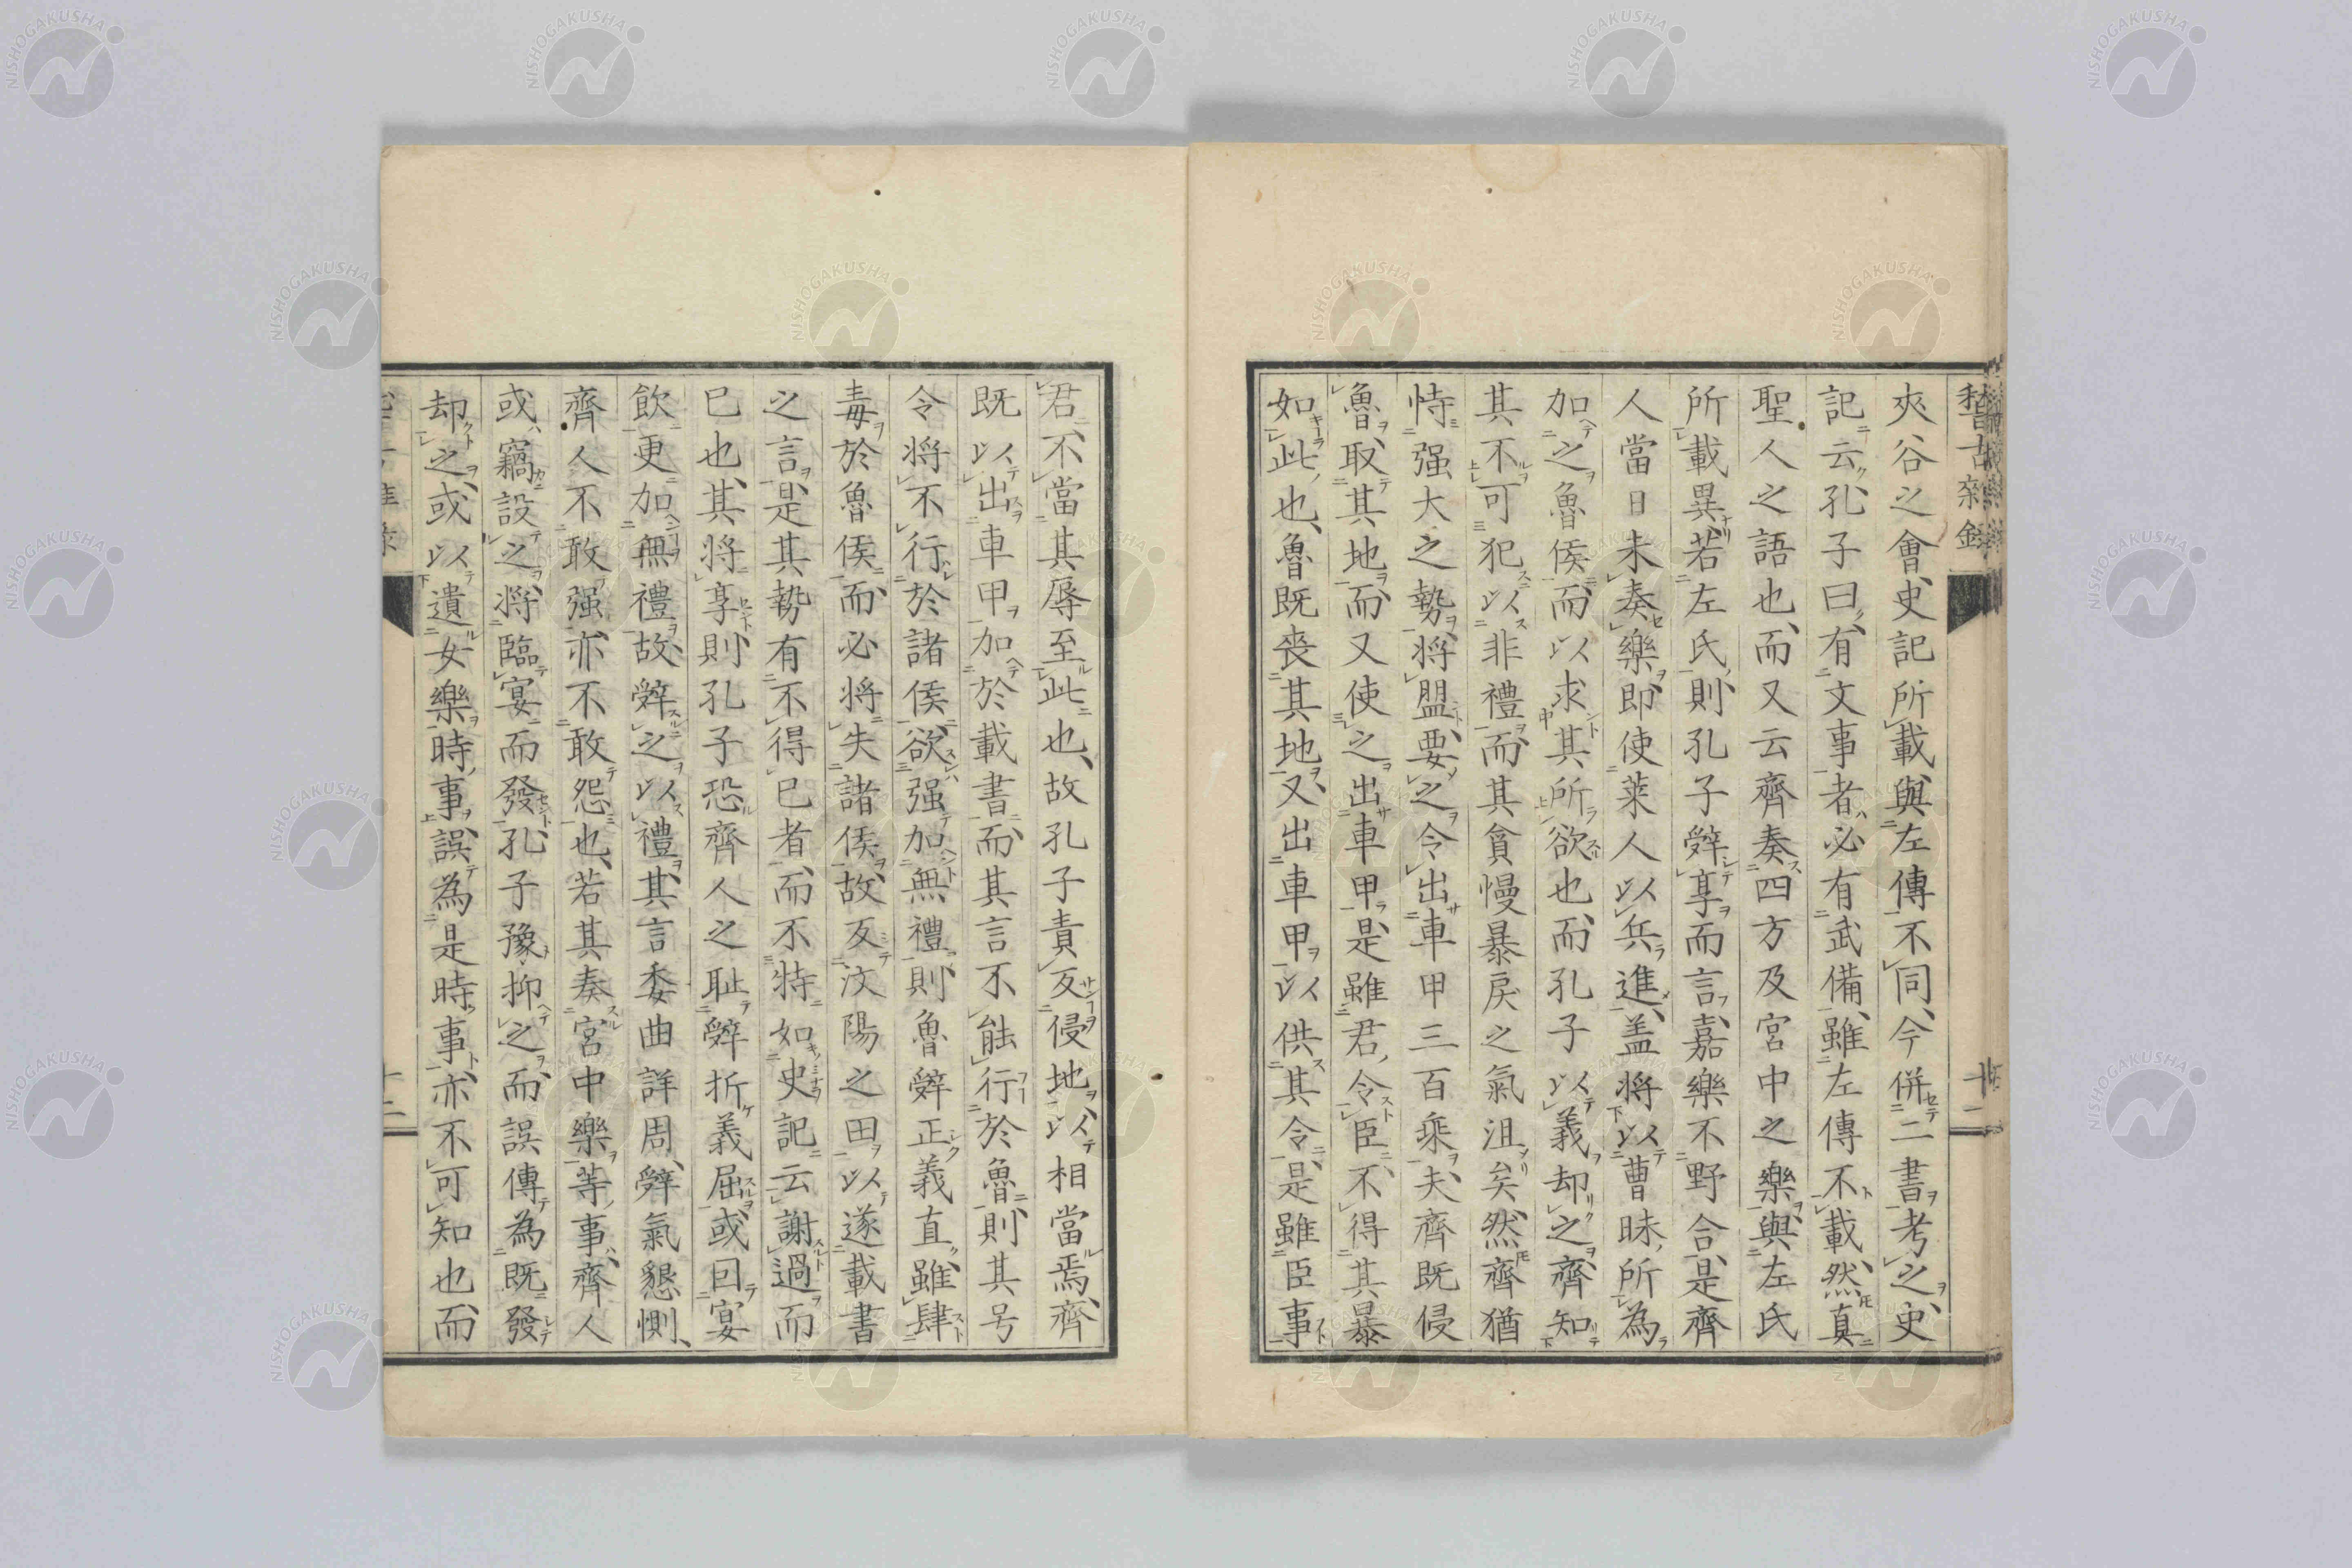 夾谷之會、史記所載、與左傳不同、今併二書考之、史
記云、孔子曰、有文事者必有武備、雖左傳不載、然真
聖人之語也、而又云齊奏四方及宮中之樂、與左氏
所載異、若左氏、則孔子辤享而言、嘉樂不野合、是齊
人當日未奏樂、即使萊人以兵進、盖將以曹昧所為
加之魯侯、而以求其所欲也、而孔子以義却之、齊知
其不可犯以非禮、而其貪慢暴戾之氣沮矣、然齊猶
恃强大之勢、將盟、要之令出車甲三百乘、夫齊既侵
魯取其地、而又使之出車甲、是雖君令臣、不得其暴
如此也、魯既喪其地、又出車甲以供其令、是雖臣事
君、不當其辱至此也、故孔子責反侵地、以相當焉、齊
既以出車甲加於載書、而其言不能行於魯、則其号
令將不行於諸侯、欲强加無禮、則魯辤正義直、雖肆
毒於魯侯、而必將失諸侯、故反汶陽之田、以遂載書
之言、是其勢有不得已者、而不特如史記云謝過而
已也、其將享則孔子恐齊人之耻、辤折義屈、或回宴
飲更加無禮、故辤之以禮、其言委曲詳周、辤氣懇惻、
齊人不敢强、亦不敢怨也、若其奏宮中樂等事、齊人
或竊設之、將臨宴而發、孔子豫抑之、而誤傳為既發
却之、或以遺女樂時事、誤為是時事、亦不可知也、而
稽古雜錄
十二
NISHOGAKUSHA